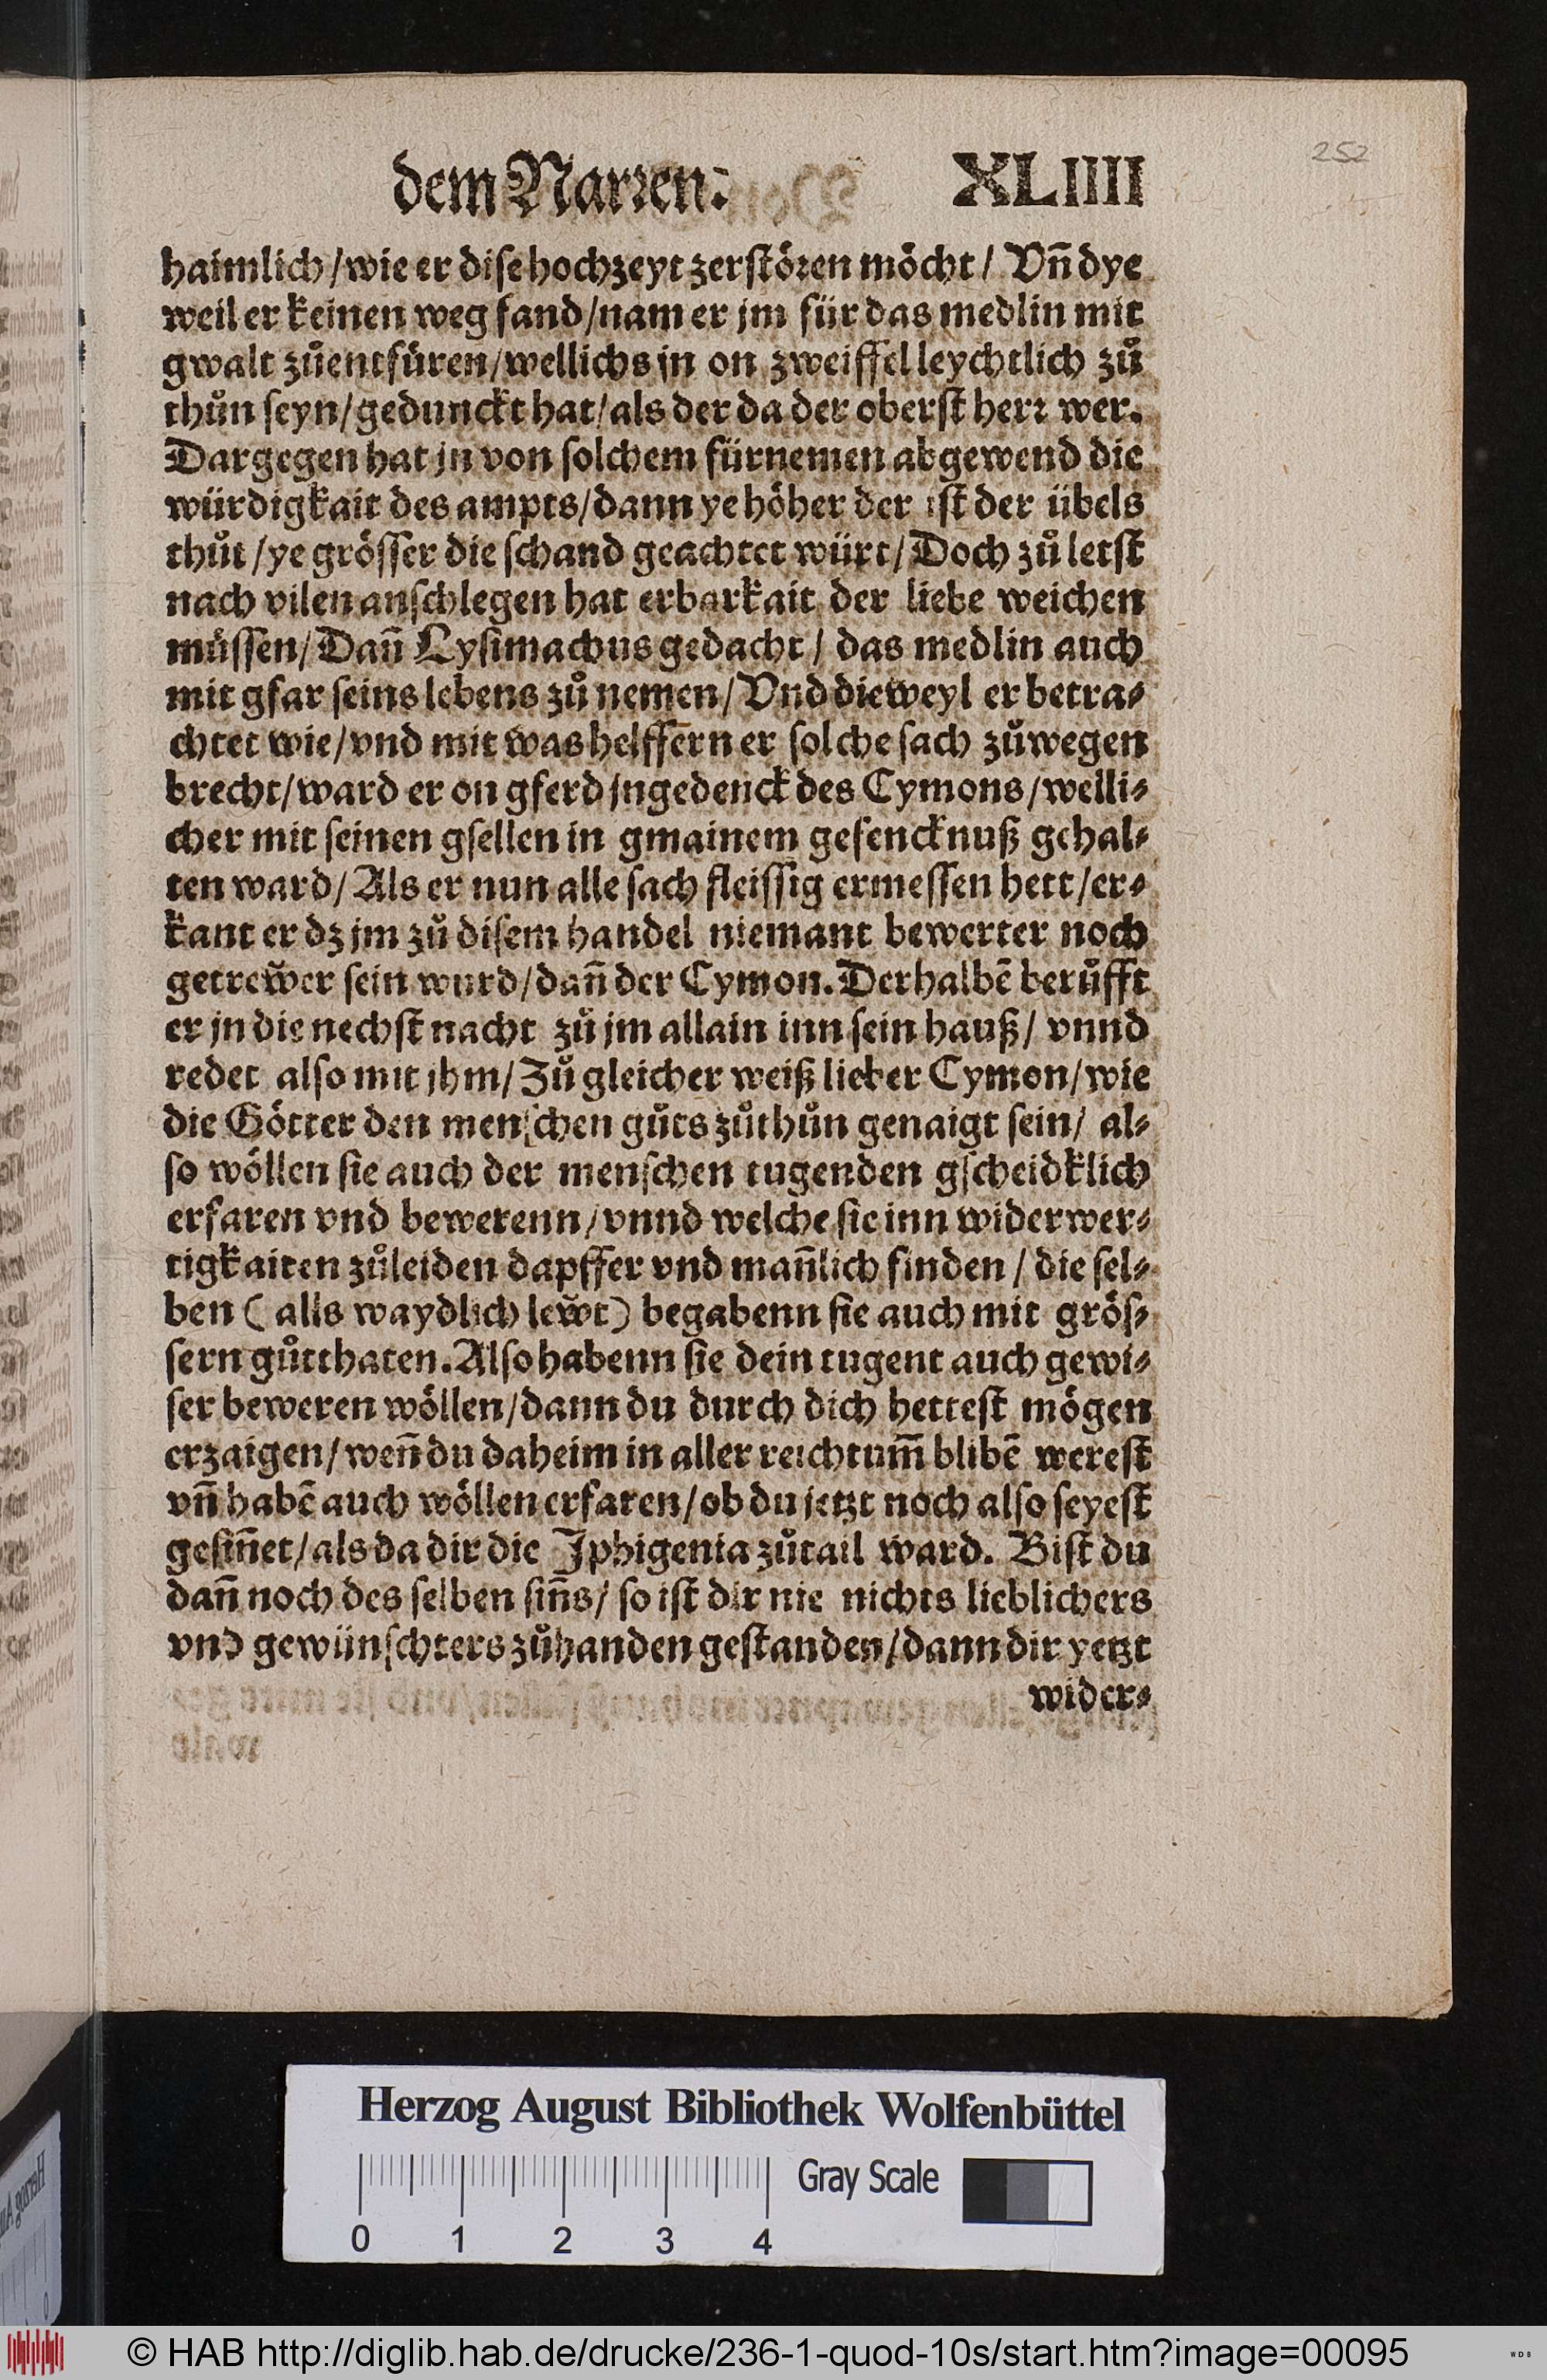 dem Narꝛen: XLIIII
252
haimlich/wie er diſe hochzeyt zerſtoͤꝛen moͤcht/ Vn̄ dye
weil er keinen weg fand/nam er jm für das medlin mit
gwalt zuͦentfuͤren/wellichs jn on zweiffel leychtlich zuͦ
thuͦn ſeyn/gedunckt hat/als der da der oberſt herꝛ wer.
Dargegen hat jn von ſolchem fürnemen abgewend die
würdigkait des ampts/dann ye hoͤher der iſt der übels
thuͦt/ye groͤſſer die ſchand geachtet würt/Doch zuͦ letſt
nach vilen anſchlegen hat erbarkait der liebe weichen
muͤſſen/Dan̄ Lyſimachus gedacht/ das medlin auch
mit gfar ſeins lebens zuͦ nemen/Vnd dieweyl er betra⸗
chtet wie/vnd mit was helffern er ſolche ſach zuͦwegen
brecht/ward er on gferd jngedenck des Cymons/welli⸗
cher mit ſeinen gſellen in gmainem gefencknuß gehal⸗
ten ward/Als er nun alle ſach fleiſſig ermeſſen hett/er⸗
kant er dz jm zuͦ diſem handel niemant bewerter noch
getrew̌er ſein wurd/dan̄ der Cymon. Derhalbē beruͤfft
er jn die nechſt nacht zuͦ jm allain inn ſein hauß/ vnnd
redet alſo mit jhm/Zuͦ gleicher weiß lieber Cymon/wie
die Goͤtter den menſchen guͦts zuͦthuͦn genaigt ſein/ al⸗
ſo woͤllen ſie auch der menſchen tugenden gſcheidklich
erfaren vnd bewerenn/vnnd welche ſie inn widerwer⸗
tigkaiten zuͦleiden dapffer vnd man̄lich finden/die ſel⸗
ben (alls waydlich lew̌t) begabenn ſie auch mit groͤſ⸗
ſern guͦtthaten. Alſo habenn ſie dein tugent auch gewi⸗
ſer beweren woͤllen/dann du durch dich hetteſt moͤgen
erzaigen/wen̄ du daheim in aller reichtum̄ blibē wereſt
vn̄ habē auch woͤllen erfaren/ob du jetzt noch alſo ſeyeſt
geſin̄et/als da dir die Iphigenia zuͦtail ward. Biſt du
dan̄ noch des ſelben ſin̄s/ ſo iſt dir nie nichts lieblichers
vnd gewünſchters zuͦhanden geſtanden/dann dir yetzt
wider⸗
Herzog August Bibliothek Wolfenbüttel
Gray Scale
0 1 2 3 4
© HAB http://diglib.hab.de/drucke/236-1-quod-10s/start.htm?image=00095
WDB